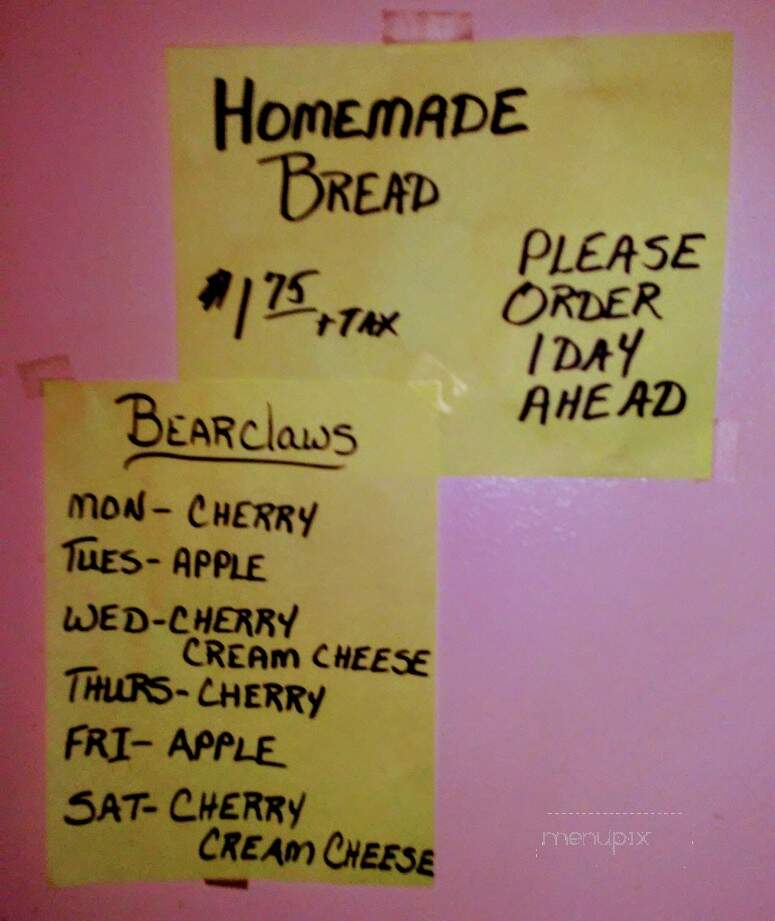 HOMEMADE
BREAD
$1 75 + TAX
PLEASE
ORDER
1 DAY
AHEAD
BEARClaWS
MON - CHERRY
TUES - APPLE
WED - CHERRY
CREAM CHEESE
THURS - CHERRY
FRI - APPLE
SAT - CHERRY
CREAM CHEESE
menupix